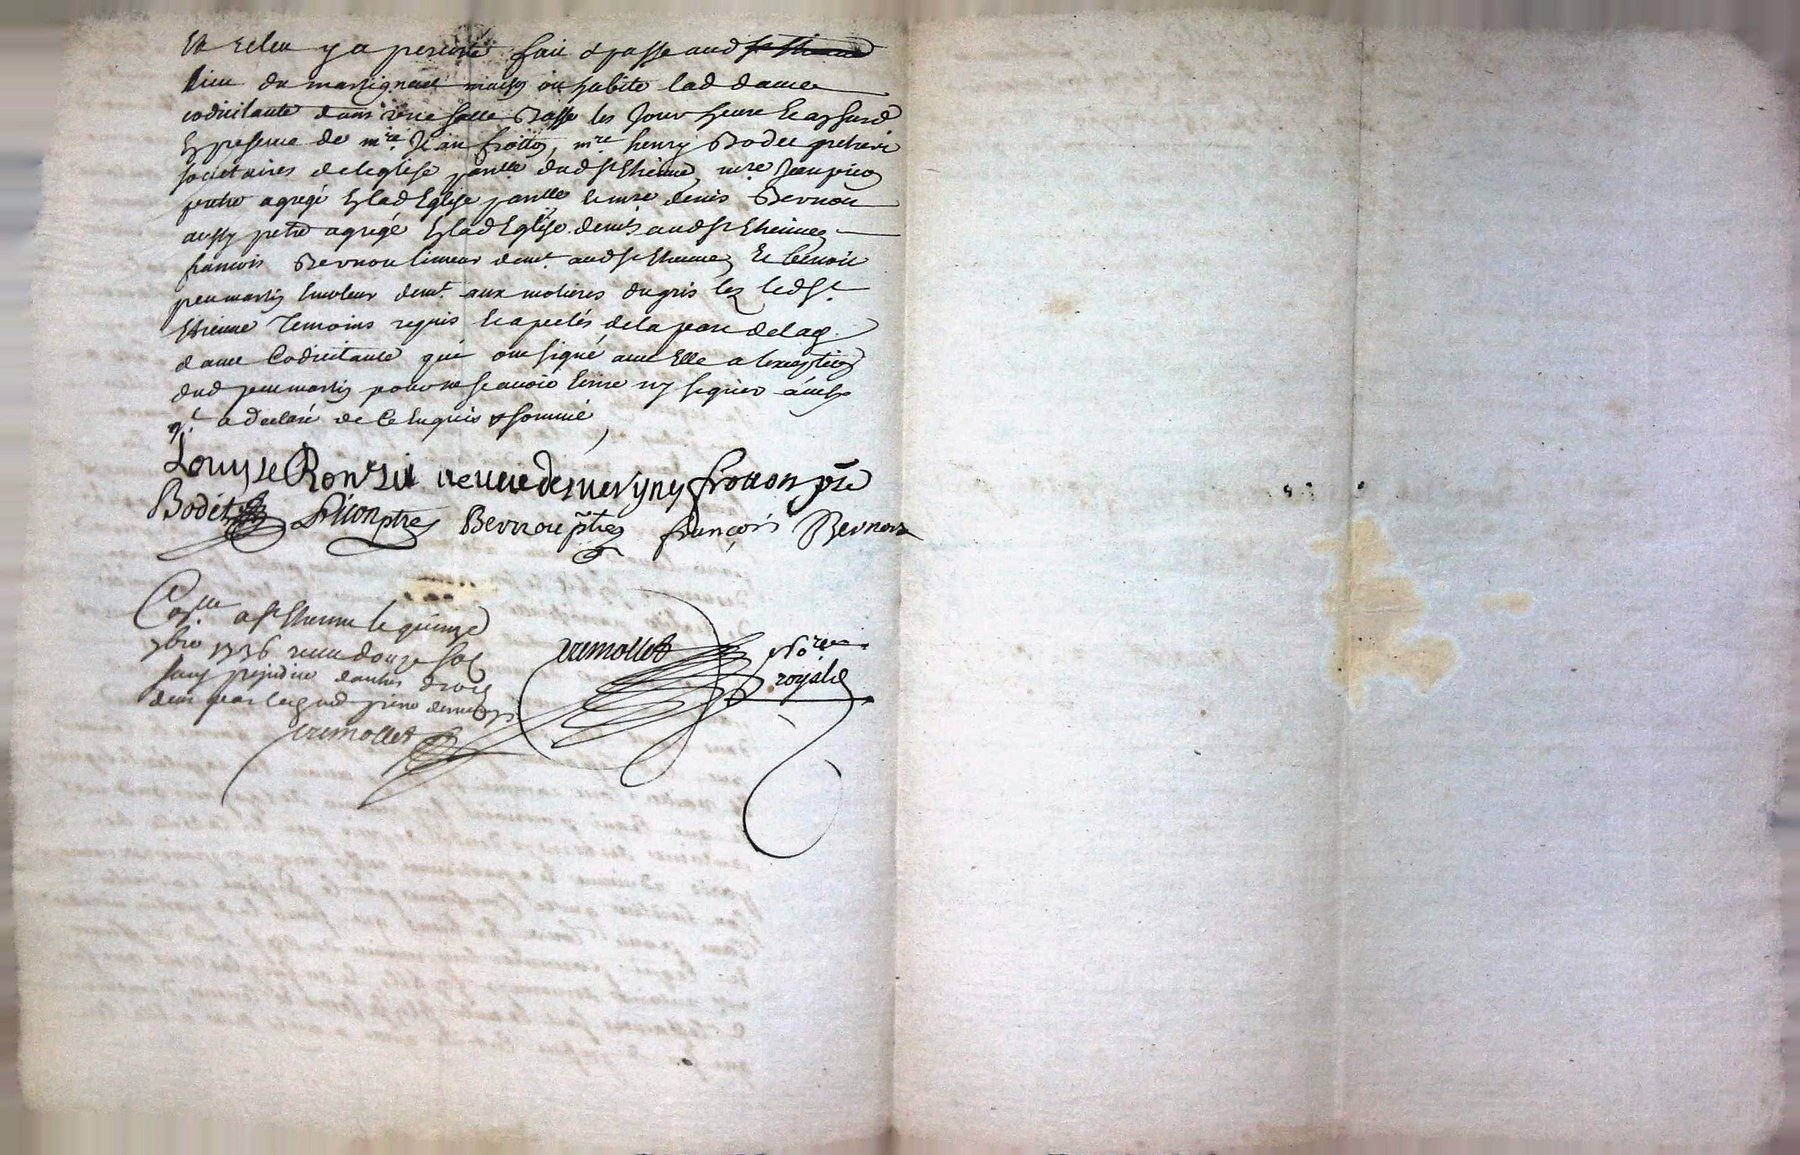 Et relu y a persisté fait & passé aud
lieu de martignat maison ou habite lad dame
codicilante dans une salle basse les jour heure et an susd
En presence de mre Jean frotton, mre henry Bodet prebtres
societaires de leglise parlle dud St Etienne, mre Jean picon
prebtre agregé En lad Eglise parlle et mre denis Bernou
aussy pretre agrégé En lad Eglise demts aud St Etienne
francois Bernou limeur demt. aud St Etienne Et benoit
peumartin Emoleur demt. aux molieres du gris lez led St.
Etienne Temoins requis et apelés de la part de lad.
dame Codicilante qui ont signé avec Elle a lexception
dud peumartin pour ne scavoir Ecrire ny signer ainsy
qt. a declaré de Ce Enquis & sommé
Louyse Ronzil veuve frotton ptre
Bodet picon ptre Bernou ptre françois Bernou
Conlle a St Etienne le quinze
7bre 1736 receu douze sols
sans prejudice dautres droits
Jeremollet Nore
royal
Jeremollet